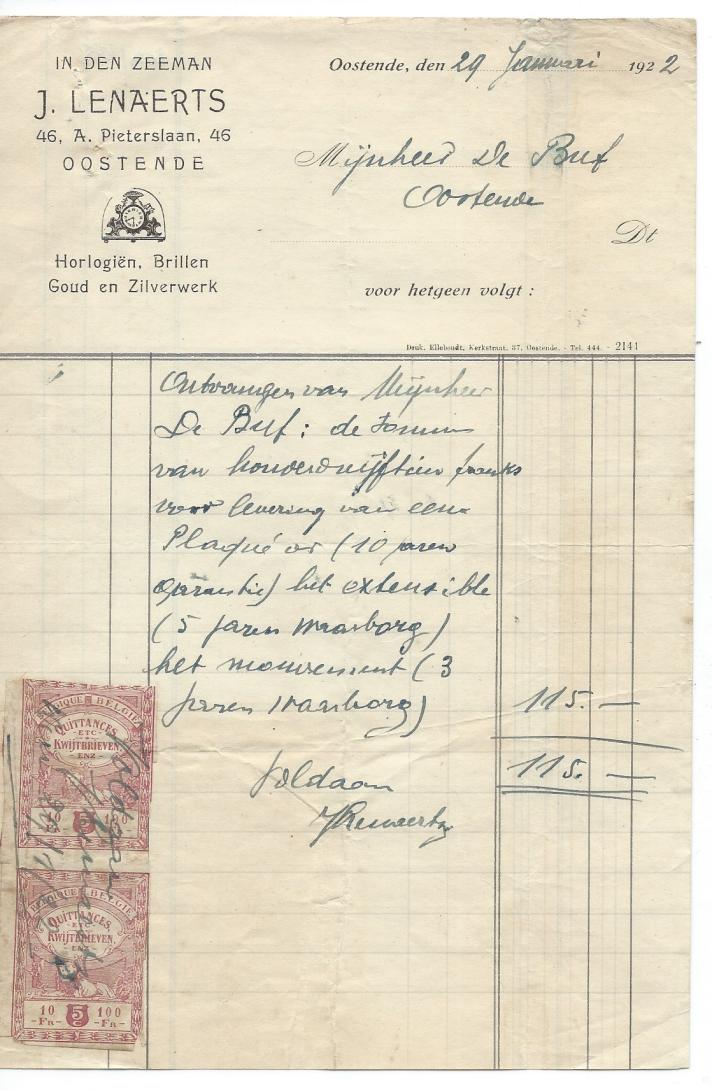 IN DEN ZEEMAN
J. LENAERTS
46, A. Pieterslaan, 46
OOSTENDE
Horlogiën, Brillen
Goud en Zilverwerk
Oostende, den 29 Januari 1922
Mijnheer De Buf
Oostende
Dt
voor hetgeen volgt :
Druk. Elleboudt, Kerkstraat, 37, Oostende. - Tel. 444. - 2141
Ontvangen van Mijnheer
De Buf : de somm
van honderdvijftien franks
voor levering van een
Plaqué or (10 jaren
garantie) het extensible
(5 jaren waarborg)
het mouvement (3
jaren waarborg) 115. —
115. —
Voldaan
JLenaerts
BELGIQUE BELGIË
QUITTANCES
ETC
KWIJTBRIEVEN
ENZ
10 5 100
BELGIQUE BELGIË
QUITTANCES
ETC
KWIJTBRIEVEN
ENZ
10 5 100
-FR- C -FR-